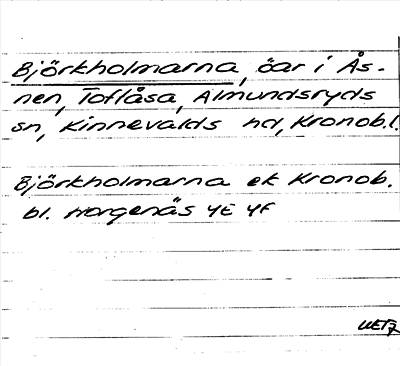 Björkholmarna, öar i Ås-
nen, Toflåsa, Almundsryds
sn, Kinnevalds hd, Kronob.l.
Björkholmarna ek Kronob.
bl. Horgenäs 4E 4F